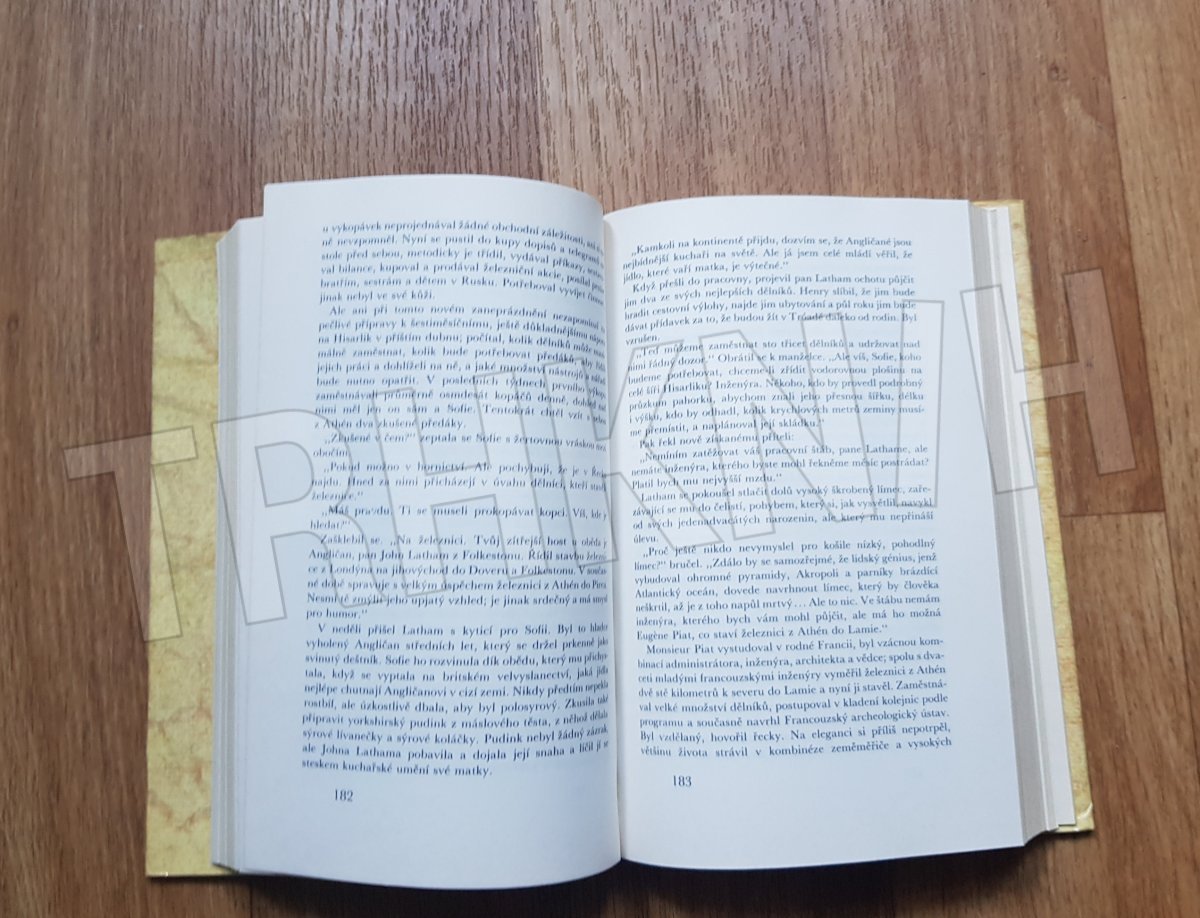 u vykopávek neprojednával žádné obchodní záležitosti, ani
ně nevzpomněl. Nyní se pustil do kupy dopisů a telegramů
stole před sebou, metodicky je třídil, vydával příkazy,
val bilance, kupoval a prodával železniční akcie, posílal
bratřím, sestrám a dětem v Rusku. Potřeboval vyvíjet
jinak nebyl ve své kůži.
Ale ani při tomto novém zaneprázdnění nezapomínal
pečlivé přípravy k šestiměsíčnímu, ještě důkladnějšímu
na Hisarlik v příštím dubnu; počítal, kolik dělníků může
málně zaměstnat, kolik bude potřebovat předáků, aby
jejich práci a dohlíželi na ně, a jaké množství nástrojů a
bude nutno opatřit. V posledních týdnech prvního
zaměstnávali průměrně osmdesát kopáčů denně, dohled nad
nimi měl jen on sám a Sofie. Tentokrát chtěl vzít s sebou
z Athén dva zkušené předáky.
„Zkušené v čem?“ zeptala se Sofie s žertovnou vráskou mezi
obočím.
„Pokud možno v hornictví. Ale pochybuji, že je v
najdu. Hned za nimi přicházejí v úvahu dělníci, kteří
železnice.“
„Máš pravdu. Ti se museli prokopávat kopci. Víš, kde je
hledat?“
Zašklebil se. „Na železnici. Tvůj zítřejší host u oběda je
Angličan, pan John Latham z Folkestonu. Řídil stavbu
ce z Londýna na jihovýchod do Doveru a Folkestonu. V součas-
né době spravuje s velkým úspěchem železnici z Athén do Pirea.
Nesmítě zmýlit jeho upjatý vzhled; je jinak srdečný a má smysl
pro humor.“
V neděli přišel Latham s kyticí pro Sofii. Byl to hladce
vyholený Angličan středních let, který se držel prkenně jako
svinutý deštník. Sofie ho rozvinula dík obědu, který mu přichys-
tala, když se vyptala na britském velvyslanectví, jaká jídla
nejlépe chutnají Angličanovi v cizí zemi. Nikdy předtím nepekla
rostbíf, ale úzkostlivě dbala, aby byl polosyrový. Zkusila také
připravit yorkshirský pudink z máslového těsta, z něhož dělala
sýrové lívanečky a sýrové koláčky. Pudink nebyl žádný zázrak,
ale Johna Lathama pobavila a dojala její snaha a líčil jí se
steskem kuchařské umění své matky.
182
„Kamkoli na kontinentě přijdu, dozvím se, že Angličané jsou
nejbídnější kuchaři na světě. Ale já jsem celé mládí věřil, že
jídlo, které vaří matka, je výtečné.“
Když přešli do pracovny, projevil pan Latham ochotu půjčit
jim dva ze svých nejlepších dělníků. Henry slíbil, že jim bude
hradit cestovní výlohy, najde jim ubytování a půl roku jim bude
dávat přídavek za to, že budou žít v Tróadě daleko od rodin. Byl
vzrušen.
„Teď můžeme zaměstnat sto třicet dělníků a udržovat nad
nimi řádný dozor.“ Obrátil se k manželce. „Ale víš, Sofie, koho
budeme potřebovat, chceme-li zřídit vodorovnou plošinu na
celé šíři Hisarliku? Inženýra. Někoho, kdo by provedl podrobný
průzkum pahorku, abychom znali jeho přesnou šířku, délku
i výšku, kdo by odhadl, kolik krychlových metrů zeminy musí-
me přemístit, a naplánoval její skládku.“
Pak řekl nově získanému příteli:
„Nemíním zatěžovat váš pracovní štáb, pane Lathame, ale
nemáte inženýra, kterého byste mohl řekněme měsíc postrádat?
Platil bych mu nejvyšší mzdu.“
Latham se pokoušel stlačit dolů vysoký škrobený límec, zaře-
závající se mu do čelistí, pohybem, který si, jak vysvětlil, navykl
od svých jedenadvacátých narozenin, ale který mu nepřináší
úlevu.
„Proč ještě nikdo nevymyslel pro košile nízký, pohodlný
límec?“ bručel. „Zdálo by se samozřejmé, že lidský génius, jenž
vybudoval ohromné pyramidy, Akropoli a parníky brázdící
Atlantický oceán, dovede navrhnout límec, který by člověka
neškrtil, až je z toho napůl mrtvý... Ale to nic. Ve štábu nemám
inženýra, kterého bych vám mohl půjčit, ale má ho možná
Eugène Piat, co staví železnici z Athén do Lamie.“
Monsieur Piat vystudoval v rodné Francii, byl vzácnou kom-
binací administrátora, inženýra, architekta a vědce; spolu s dva-
ceti mladými francouzskými inženýry vyměřil železnici z Athén
dvě stě kilometrů k severu do Lamie a nyní ji stavěl. Zaměstná-
val velké množství dělníků, postupoval v kladení kolejnic podle
programu a současně navrhl Francouzský archeologický ústav.
Byl vzdělaný, hovořil řecky. Na eleganci si příliš nepotrpěl,
většinu života strávil v kombinéze zeměměřiče a vysokých
183
TRHKNIH